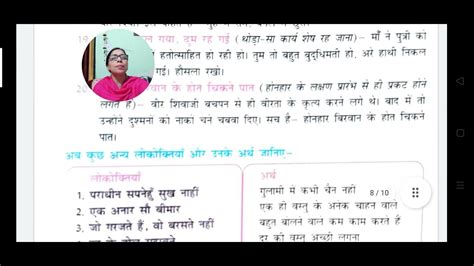 गया, दुम रह गई (थोड़ा-सा कार्य शेष रह जाना)– माँ ने पुत्री को
हतोत्साहित हो रही हो। तुम तो बहुत बुद्धिमती हो, अरे हाथी निकल
गई। हौसला रखो।
20
के होत चिकने पात (होनहार के लक्षण प्रारंभ से ही प्रकट होने
लगते हैं)– वीर शिवाजी बचपन से ही वीरता के कृत्य करने लगे थे। बाद में तो
उन्होंने दुश्मनों को नाकों चने चबवा दिए। सच है– होनहार बिरवान के होत चिकने
पात।
अब कुछ अन्य लोकोक्तियाँ और उनके अर्थ जानिए–
लोकोक्तियाँ
अर्थ
1. पराधीन सपनेहुँ सुख नाहीं
गुलामी में कभी चैन नहीं
8/10
2. एक अनार सौ बीमार
एक ही वस्तु के अनेक चाहने वाले
3. जो गरजते हैं, वो बरसते नहीं
बहुत बोलने वाले कम काम करते हैं
दूर की वस्तु अच्छी लगना